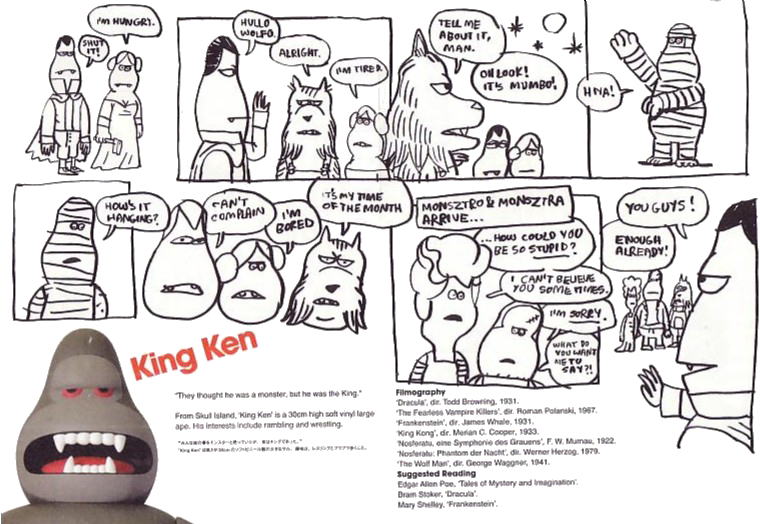 I'M HUNGRY.
SHUT
IT!
HULLO
WOLFO.
ALRIGHT.
I'M TIRED.
TELL ME
ABOUT IT,
MAN.
OH LOOK!
IT'S MUMBO!
HIYA!
HOW'S IT
HANGING?
CAN'T
COMPLAIN
I'M
BORED
IT'S MY TIME
OF THE MONTH
MONSZTRO & MONSZTRA
ARRIVE...
...HOW COULD YOU
BE SO STUPID?
I CAN'T BELIEVE
YOU SOMETIMES.
I'M SORRY.
WHAT DO
YOU WANT
ME TO
SAY?!
YOU GUYS!
ENOUGH
ALREADY!
King Ken
"They thought he was a monster, but he was the King."
From Skull Island, 'King Ken' is a 30cm high soft vinyl large
ape. His interests include rambling and wrestling.
Filmography
'Dracula', dir. Todd Browning, 1931.
'The Fearless Vampire Killers', dir. Roman Polanski, 1967.
'Frankenstein', dir. James Whale, 1931.
'King Kong', dir. Merian C. Cooper, 1933.
'Nosferatu, eine Symphonie des Grauens', F. W. Murnau, 1922.
'Nosferatu: Phantom der Nacht', dir. Werner Herzog, 1979.
'The Wolf Man', dir. George Waggner, 1941.
Suggested Reading
Edgar Allen Poe, 'Tales of Mystery and Imagination'.
Bram Stoker, 'Dracula'.
Mary Shelley, 'Frankenstein'.